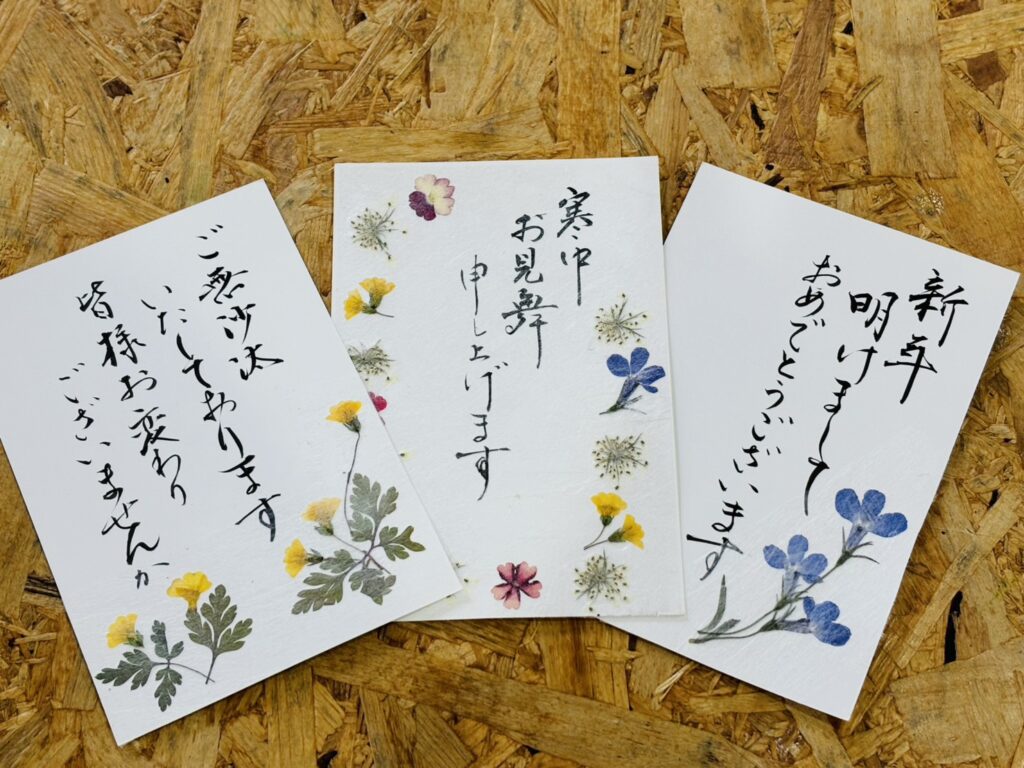 ご無沙汰
いたしております
皆様お変わり
ございませんか
寒中
お見舞
申し上げます
新年
明けまして
おめでとうございます